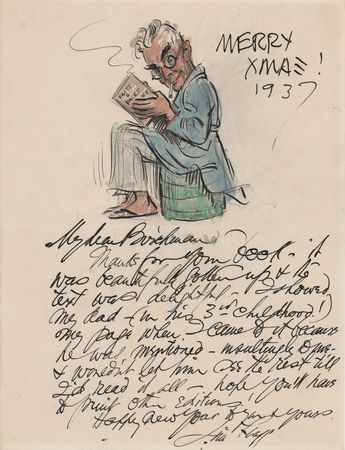 MERRY
XMAS!
1937
My dear
Thanks for your book - it
was beautifully gotten up & the
text was delightful - I showed
my Dad - (in his 3rd childhood!)
my page when I came to it because
he was mentioned - insultingly
& wouldn't let him see the rest till
I'd read it all - hope you'll have
to print other Editions
Happy New Year to you & yours.